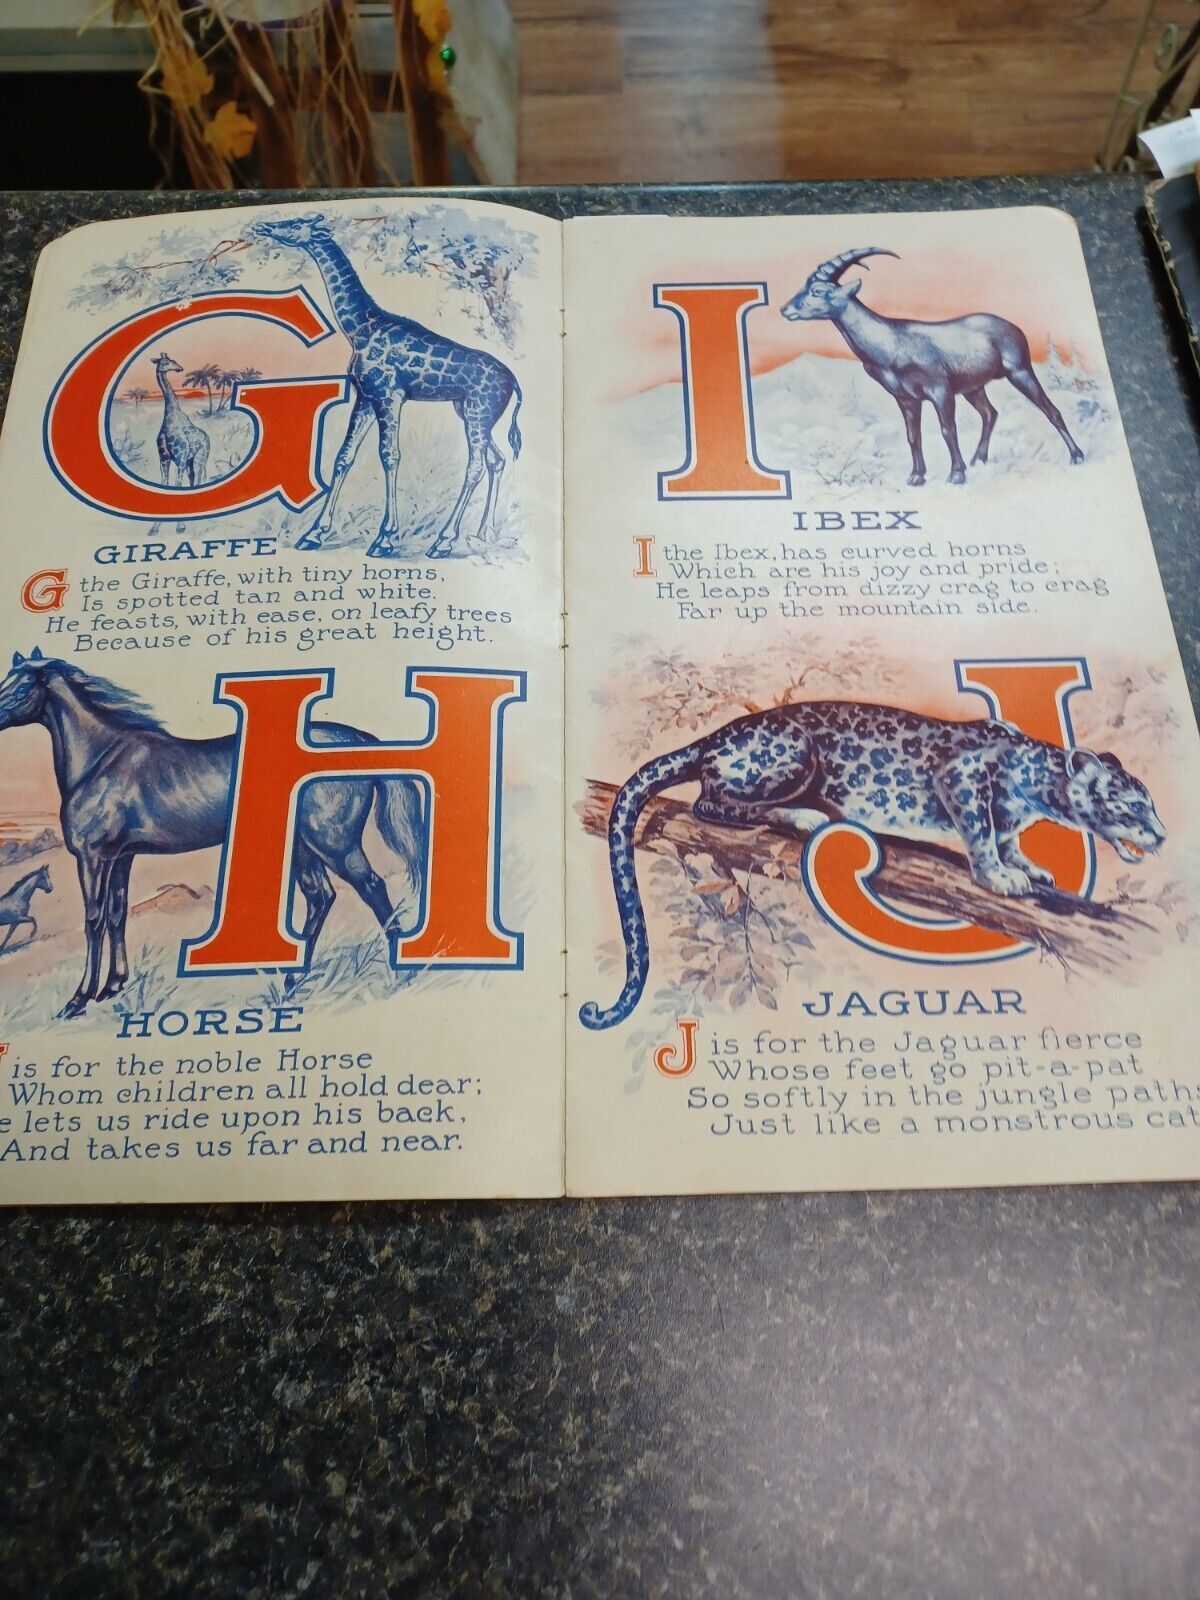 G
GIRAFFE
G the Giraffe, with tiny horns,
Is spotted tan and white.
He feasts, with ease, on leafy trees
Because of his great height.
H
HORSE
is for the noble Horse
Whom children all hold dear;
lets us ride upon his back,
And takes us far and near.
I
IBEX
I the Ibex, has curved horns
Which are his joy and pride;
He leaps from dizzy crag to crag
Far up the mountain side.
J
JAGUAR
J is for the Jaguar fierce
Whose feet go pit-a-pat
So softly in the jungle paths
Just like a monstrous cat